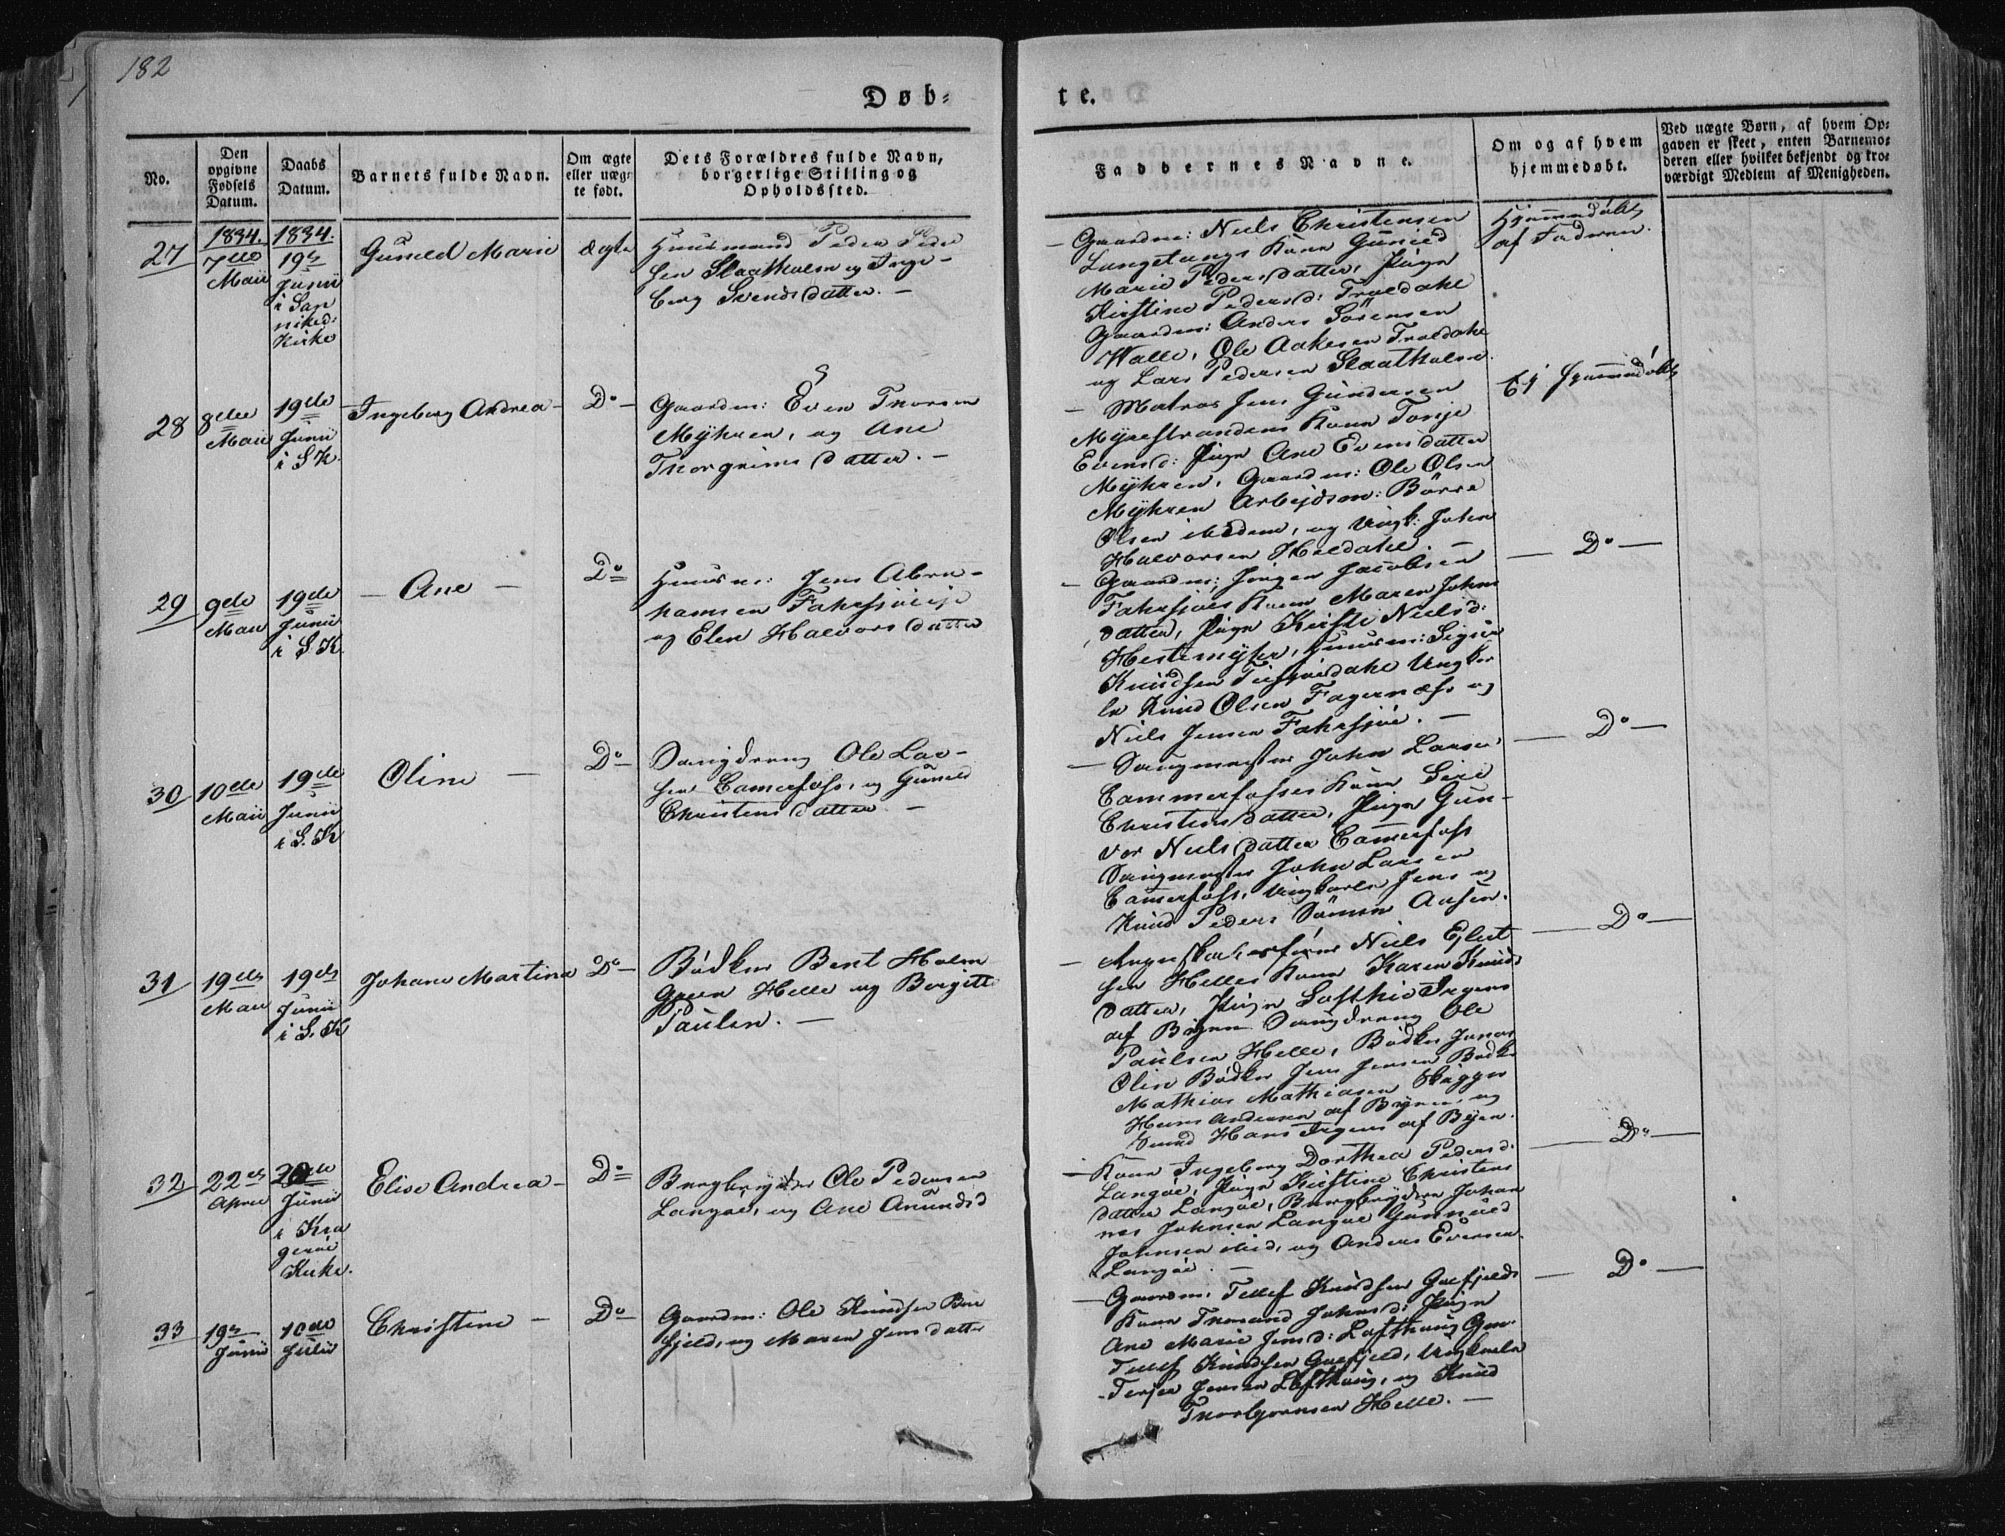 182
Døb-
te.
No.
Den opgivne Fødsels Datum.
Daabs Datum.
Barnets fulde Navn.
Om ægte eller uægte født.
Dets Forældres fulde Navn, borgerlige Stilling og Opholdssted.
Faddernes Navne.
Om og af hvem hjemmedøbt.
Ved uægte Børn, af hvem Opgaven er skeet, enten Barnemoderen eller hvilket bekjendt og troværdigt Medlem af Menigheden.
27
1834.
7de
Maii
1834.
19de
Junii
i San
niked:
Kirke
Guneld Marie
ægte
Huusmand Peder Peder
sen Slaatholm og Inge-
berg Svends datter. —
— Gaardm: Niels Christensen
Langetangs Kone Guneld
Marie Peders datter, Pige
Kirstine Pedersd: Traldahl
Gaardm: Anders Sørensen
Walle, Ole Aakesen Traldahl
og Lars Pedersen Slaatholm.
Hjemmedøbt
af Faderen.
28
8de
Maii
19de
Junii
i S K.
Ingeborg Andrea
Do —
Gaardm: Even Thorsen
Myhren, og Ane
Thorgrims datter. —
— Matros Jens Gundersen
Myrestrandens Kone Tonje
Evensd: Pige Ane Evens datter
Myhren, Gaardm: Ole Olsen
Myhren Arbejdsm: Börre
Olsen ibidem, og Ungk: John
Halvorsen Heldahl. —
Ej hjemmedøbt
29
9de
Maii
19de
Junii
i S K.
— Ane —
Do
Huusm: Jens Abra-
hamsen Fahrsjöeje
og Elen Halvors datter
— Gaardm: Jörgen Jacobsen
Fahrsjöes Kone Maren Johns
datter, Pige Kirsti Nielsd:
Hestemyhr, Huusm: Sigur
Knudsen Ungkar
le Knud Olsen Fagernæs og
Niels Jensen Fahrsjöe. —
— Do —
30
10de
Maii
19de
Junii
i S. K
Oline —
Do —
Saugdreng Ole Lar-
sen Camerfoss, og Guneld
Christens datter —
— Saugmester John Larsen
Cammerfosses Kone Siri
Christens datter, Pige Gun-
vor Niels datter Camerfoss
Saugmester John Larsen
Camerfoss, Ungkarle Jens og
Knud Peders Aasen.
— Do —
31
19de
Maii
19de
Junii
i S. K
Johane Martine
Do —
Bödker Bent Holm
Green Helle og Birgitte
Paulsen. —
— Niels Ejlert
sen Helles Kone Karen Knuds
datter, Pige Irgens
af Byen Saugdreng Ole
Paulsen Helle, Bödker Jonas
Olsen Bödker Jens Jensen Bödker
Mathias Mathiasen Skipper
Hans Andersen af Byen, og
Hans Irgens af Byen.
— Do —
32
22de
April
20de
Junii
i Kra
geröe
Kirke.
Elise Andrea —
Do
Bergbryder Ole Pedersen
Langöe, og Ane Amundsd
— Kone Ingeborg Dorthea Pedersd:
Langöe, Pige Kirstine Christens
datter Langöe, Bergbrydere Johan
nes Johnsen Langöe Gunneld
Johnsen ibid, og Anders Evensen
Langöe. —
— Do —
33
19de
Junii
10de
Julii
Christine —
Do —
Gaardm: Ole Knudsen Bue
fjeld, og Maren Jens datter
— Gaardm: Tellef Knudsen Guefjelds
Kone Thomand Johnsd: Pige
Ane Marie Jensd: Lofthuug Gm:
Tellef Knudsen Guefjeld, Ungkarle
Terje Jensen Lofthuug, og Knud
Thorbjørnsen Helle. —
— Do —